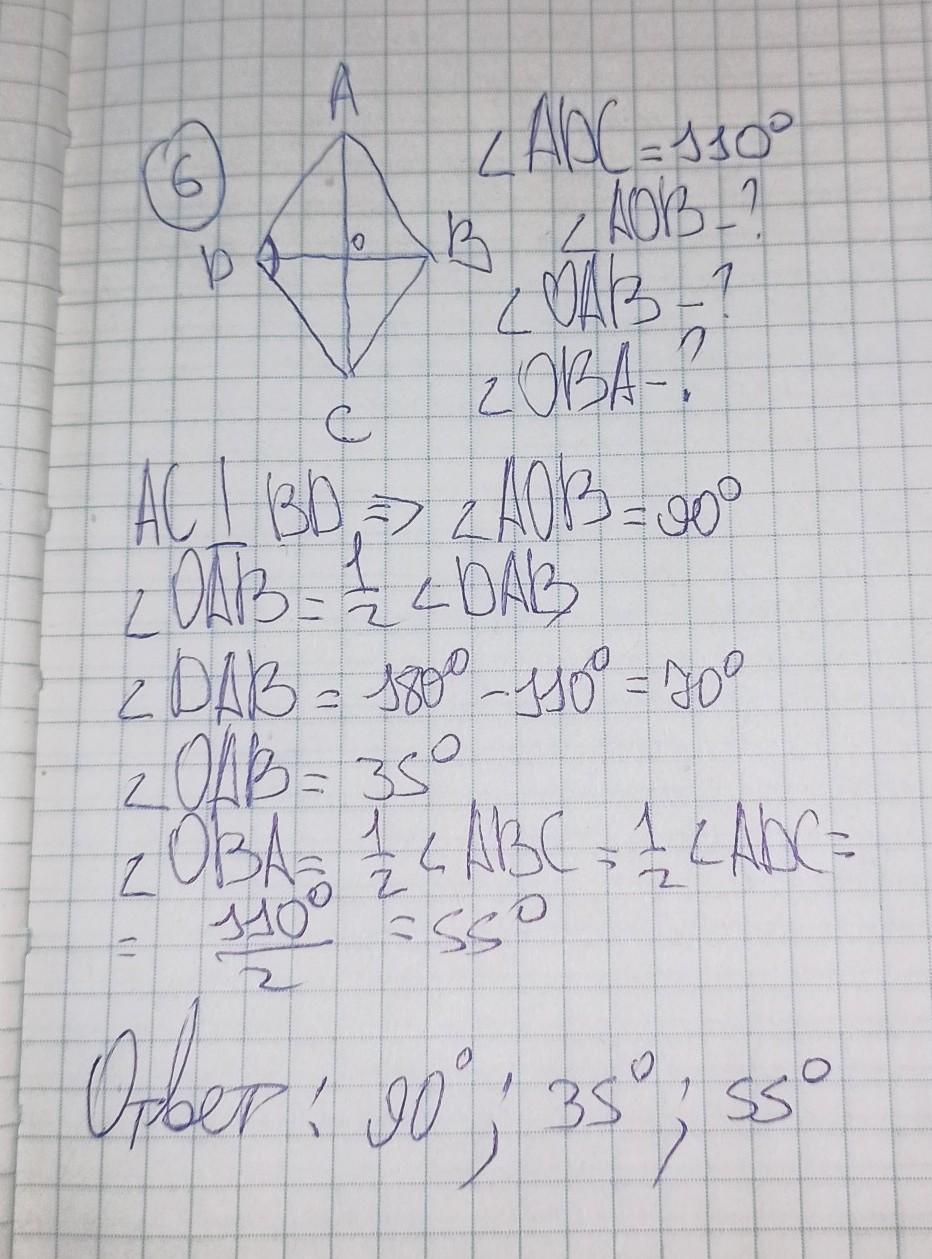 6
A
D
O
B
C
∠ADC = 110°
∠AOB - ?
∠OAB - ?
∠OBA - ?
AC ⊥ BD ⇒ ∠AOB = 90°
∠OAB = 1/2 ∠DAB
∠DAB = 180° - 110° = 70°
∠OAB = 35°
∠OBA = 1/2 ∠ABC = 1/2 ∠ADC =
= 110°/2 = 55°
Ответ: 90°; 35°; 55°